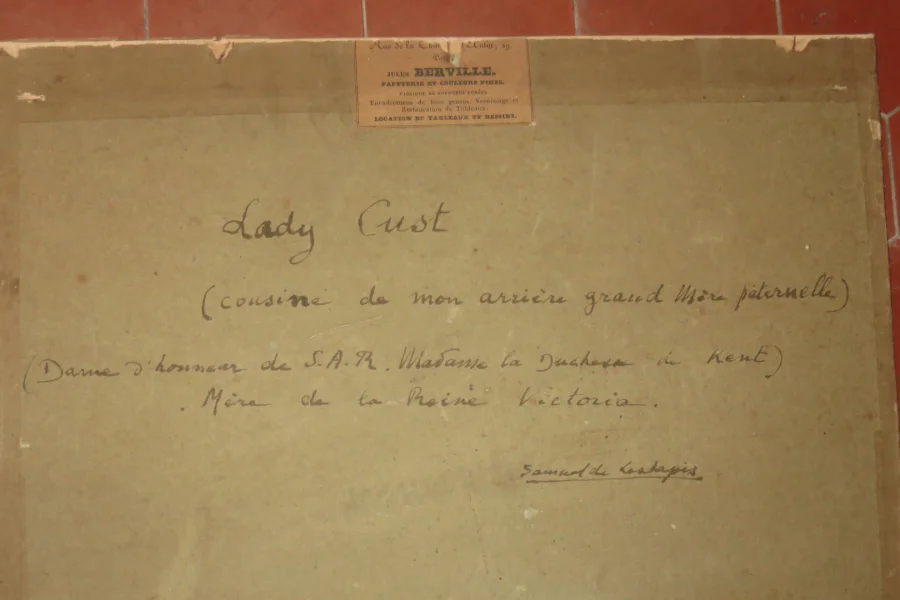 Rue de la 29
JULES BERVILLE.
PAPETERIE ET COULEURS FINES.
Encadremens de tous genres, Vernissage et
Restauration de Tableaux.
LOCATION DE TABLEAUX ET DESSINS.
Lady Cust
(cousine de mon arrière grand Mère paternelle)
(Dame d'honneur de S.A.R. Madame la Duchesse de Kent)
Mère de la Reine Victoria.
Samuel de